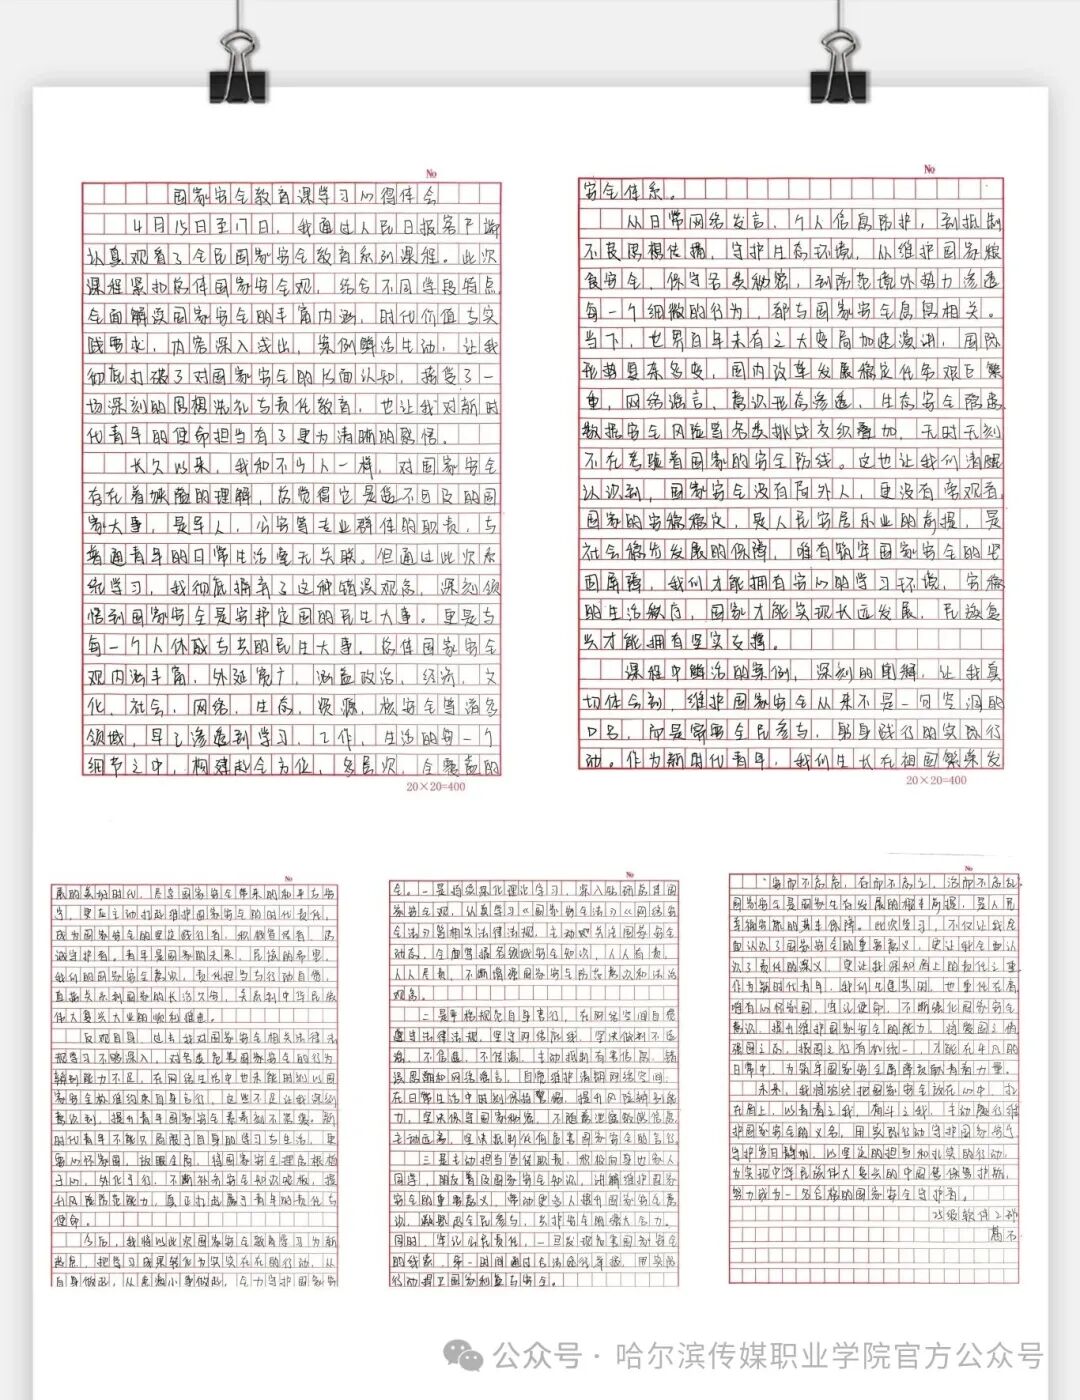 No
国家安全教育课学习心得体会
4月15日至17日，我通过人民日报客户端
认真观看了全民国家安全教育系列课程。此次
课程紧扣总体国家安全观，结合不同学段特点
全面解读国家安全的丰富内涵、时代价值与实
践要求，内容深入浅出，案例鲜活生动，让我
彻底打破了对国家安全的片面认知，接受了一
场深刻的思想洗礼与责任教育，也让我对新时
代青年的使命担当有了更为清晰的感悟。
长久以来，我和不少人一样，对国家安全
存在着狭隘的理解，总觉得它是遥不可及的国
家大事，是军人、公安等专业群体的职责，与
普通青年的日常生活毫无关联。但通过此次系
统学习，我彻底摒弃了这种错误观念，深刻领
悟到国家安全是安邦定国的民生大事。更是与
每一个人休戚与共的民生大事。总体国家安全
观内涵丰富，外延宽广，涵盖政治、经济、文
化、社会、网络、生态、资源、核安全等诸多
领域，早已渗透到学习、工作、生活的每一个
细节之中，构建起全方位、多层次、全覆盖的
20×20=400
No
安全体系。
从日常网络发言、个人信息防护，到抵制
不良思想传播、守护生态环境，从维护国家粮
食安全、保守各类秘密，到防范境外势力渗透
每一个细微的行为，都与国家安全息息相关。
当下，世界百年未有之大变局加速演进，国际
形势复杂多变，国内改革发展稳定任务艰巨繁
重，网络谣言、意识形态渗透、生态安全隐患
数据安全风险等各类挑战交织叠加，无时无刻
不在考验着国家的安全防线。这也让我们清醒
认识到，国家安全没有局外人，更没有旁观者，
国家的安稳稳定，是人民安居乐业的前提，是
社会稳步发展的保障，唯有筑牢国家安全的坚
固屏障，我们才能拥有安心的学习环境、安稳
的生活秩序，国家才能实现长远发展、民族复
兴才能拥有坚实支撑。
课程中鲜活的案例，深刻的阐释，让我真
切体会到，维护国家安全从来不是一句空洞的
口号，而是需要全民参与、躬身践行的实际行
动。作为新时代青年，我们生长在祖国繁荣发
20×20=400
No
展的美好时代，尽享国家安全带来的和平与安
宁，更应主动扛起维护国家安全的时代责任，
成为国家安全的坚定践行者、积极宣传者、忠
诚守护者。青年是国家的未来、民族的希望，
我们的国家安全意识、责任担当与行动自觉，
直接关系到国家的长治久安，关系到中华民族
伟大复兴大业的顺利推进。
反观自身，过去我对国家安全相关法律法
规学习不够深入，对各类危害国家安全的行为
辨别能力不足，在网络生活中也未能时刻以国
家安全标准约束自身言行，这些不足让我深刻
意识到，提升青年国家安全素养刻不容缓。新
时代青年不能只局限于自身的学习与生活，更
要心怀家国，放眼全局，将国家安全理念根植
于心、外化于行，不断补齐安全知识短板，提
升风险防范能力，真正扛起属于青年的责任与
使命。
今后，我将以此次国家安全教育学习为新
起点，把学习成果转化为实实在在的行动，从
自身做起，从点滴小事做起，全力守护国家安
No
全。一是持续深化理论学习，深入钻研总体国
家安全观，认真学习《国家安全法》《网络安
全法》等相关法律法规，主动关注国家安全
动态，全面掌握各领域安全知识，人人有责、
人人尽责，不断增强国家安全防范意识和法治
观念。
二是严格规范自身言行，在网络空间自觉
遵守法律法规，坚守网络底线，坚决做到不造
谣、不信谣、不传谣，主动抵制有害信息、错
误思潮和网络谣言，自觉维护清朗网络空间；
在日常生活中时刻保持警惕，提升风险辨别能
力，坚决保守国家秘密，不随意泄露敏感信息
主动远离、坚决抵制任何危害国家安全的言行。
三是主动担当宣传职责，积极向身边家人
同学、朋友普及国家安全知识，讲解维护国家
安全的重要意义，带动更多人提升国家安全意
识，凝聚起全民参与、共护安全的强大合力。
同时，牢记公民责任，一旦发现危害国家安全
的线索，第一时间通过合法途径举报，用实际
行动捍卫国家利益与安全。
No
“安而不忘危，存而不忘亡，治而不忘乱。
国家安全是国家生存发展的根本前提，是人民
幸福安康的基本保障。此次学习，不仅让我全
面认识了国家安全的重要意义，更让我全面认
识了责任的深义，更让我深知肩上的责任之重
作为新时代青年，我们生逢其时，也重任在肩
唯有心怀家国、牢记使命，不断强化国家安全
意识，提升维护国家安全的能力，将爱国之情
强国之志、报国之行有机统一，才能在平凡的
日常中，为筑牢国家安全屏障贡献青春力量。
未来，我将始终把国家安全放在心中，扛
在肩上，以青春之我、奋斗之我，主动履行维
护国家安全的义务，用实际行动守护国家安宁、
守护岁月静好，以坚定的担当和扎实的行动，
为实现中华民族伟大复兴的中国梦保驾护航，
努力成为一名合格的国家安全守护者。
25级软件2班
葛石
公众号·哈尔滨传媒职业学院官方公众号